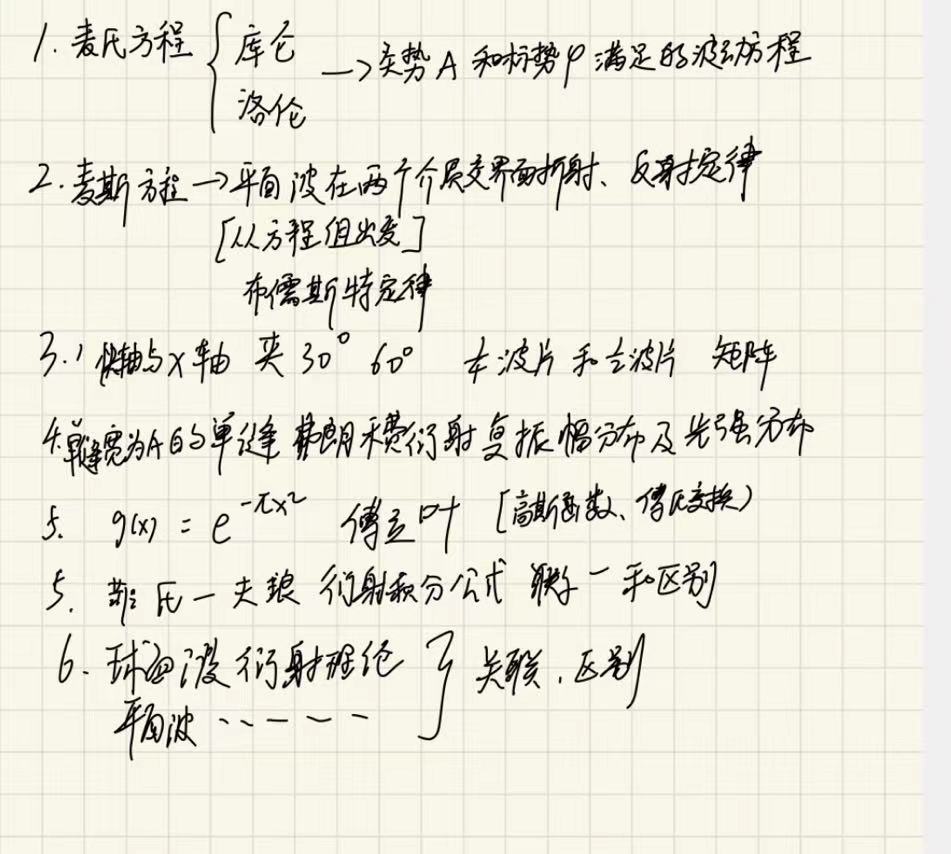 1. 麦氏方程 { 库仑
洛伦 → 矢势 A 和标势 φ 满足的波动方程
2. 麦斯方程 → 平面波在两个介质交界面折射、反射定律
[从方程组出发]
布儒斯特定律
3. 1 快轴与 x 轴 夹 30° 60° 波片和 波片 矩阵
4. 缝宽为A的单缝 夫朗禾费衍射复振幅分布及光强分布
5. g(x) = e^{-πx²} 傅立叶 [高斯函数、傅氏变换)
5. 菲氏一夫琅 衍射积分公式 联 一和区别
6. 球面波衍射理论 } 关联、区别
平面波 ······